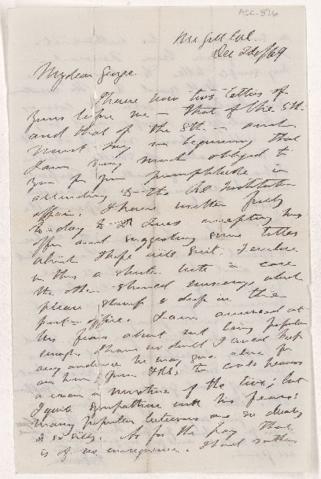 McGill Col.
Dec 22d/69
My dear George
I have now two letters of
yours before me – that of the 5th
and that of the 8th – and
must say in beginning that
I am very much obliged to
you for your promptitude in
attending to the Instit
affair. I have written fully
to day to accepting his
offer and suggesting some titles
which I hope will suit. I enclose
in this a shorter note in case
the other should miscarry which
please stamp & drop in the
post-office. I am amused at
his fears about not being popular
enough. I have no doubt I could keep
any audience he may give alive for
an hour from
a man a mixture of the two; but
I quite sympathise with his fears:
many popular lectures are so
& so silly. As for the pay that
is of no consequence. I had rather